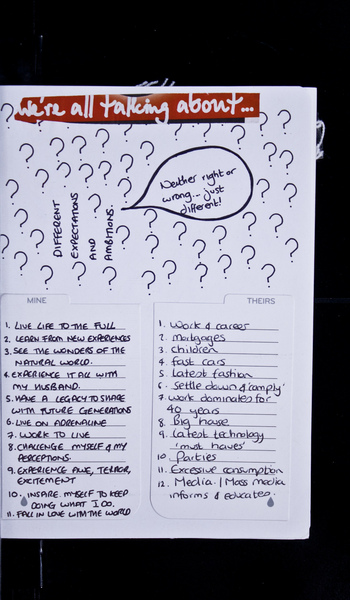 we're all talking about...
Neither right or
wrong... just
different!
DIFFERENT
EXPECTATIONS
AND
AMBITIONS.
MINE
1. LIVE LIFE TO THE FULL
2. LEARN FROM NEW EXPERIENCES
3. SEE THE WONDERS OF THE
NATURAL WORLD.
4. EXPERIENCE IT ALL WITH
MY HUSBAND.
5. HAVE A LEGACY TO SHARE
WITH FUTURE GENERATIONS
6. LIVE ON ADRENALINE
7. WORK TO LIVE
8. CHALLENGE MYSELF & MY
PERCEPTIONS.
9. EXPERIENCE AWE, TERROR,
EXCITEMENT
10. INSPIRE MYSELF TO KEEP
DOING WHAT I DO.
11. FALL IN LOVE WITH THE WORLD
THEIRS
1. Work & careers
2. mortgages
3. children
4. fast cars
5. Latest fashion
6. Settle down & 'comply'
7. Work dominates for
40 years
8. Big house
9. Latest technology
'must haves'
10. Parties
11. Excessive consumption
12. Media / Mass media
informs & educates.